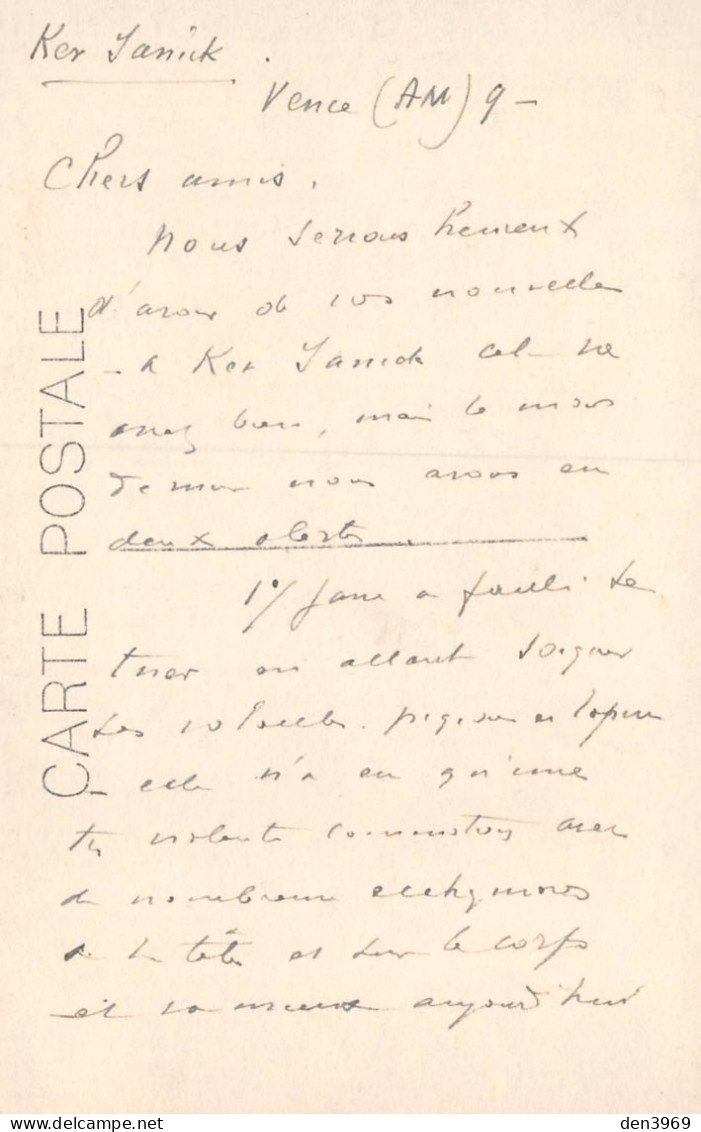 Ker Yanick.
Vence (AM) 9 -
Chers amis,
Nous serions heureux
d'avoir de vos nouvelles
- a Ker Yanick cela va
assez bien, mais le mois
dernier nous avons eu
deux alertes
1°/ Jane a failli se
tuer en allant soigner
les volailles, pigeons et lapins
elle n'a eu qu'une
très violente commotion avec
de nombreuses ecchymoses
à la tête et sur le corps
et va mieux aujourd'hui
CARTE POSTALE
den3969